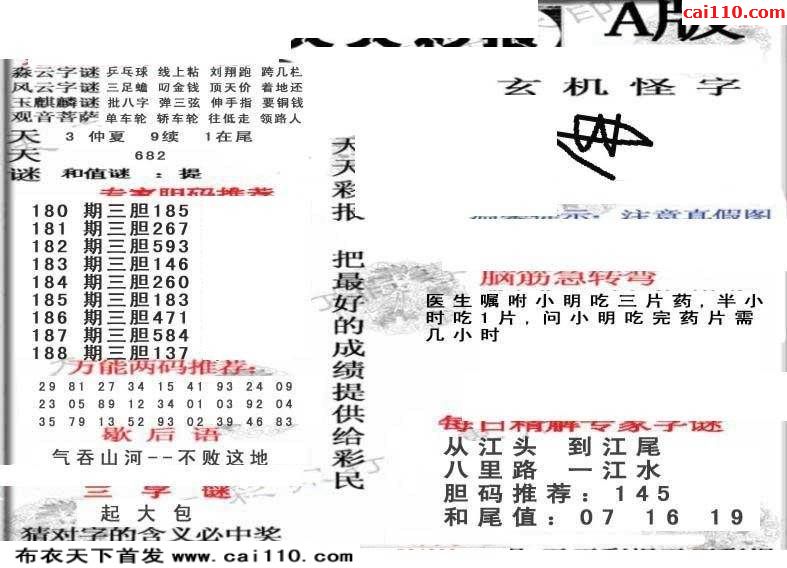 cai110.com
A版
森云字谜 乒乓球 线上粘 刘翔跑 跨几栏
风云字谜 三足蟾 叼金钱 顶天价 着地还
玉麒麟谜 批八字 弹三弦 伸手指 要铜钱
观音菩萨 单车轮 轿车轮 往低走 领路人
天 3 仲夏 9续 1在尾
天 682
谜 和值谜 : 提
专家胆码推荐
180 期三胆185
181 期三胆267
182 期三胆593
183 期三胆146
184 期三胆260
185 期三胆183
186 期三胆471
187 期三胆584
188 期三胆137
万能两码推荐:
29 81 27 34 15 41 93 24 09
23 05 89 12 34 01 03 92 04
35 79 13 52 93 02 39 46 83
歇后语
气吞山河--不败这地
三字谜
起大包
猜对字的含义必中奖
布衣天下首发 www.cai110.com
天天彩报 把最好的成绩提供给彩民
玄机怪字
注意真假图
脑筋急转弯
医生嘱咐小明吃三片药,半小
时吃1片,问小明吃完药片需
几小时
每日精解专家字谜
从江头 到江尾
八里路 一江水
胆码推荐: 145
和尾值: 07 16 19